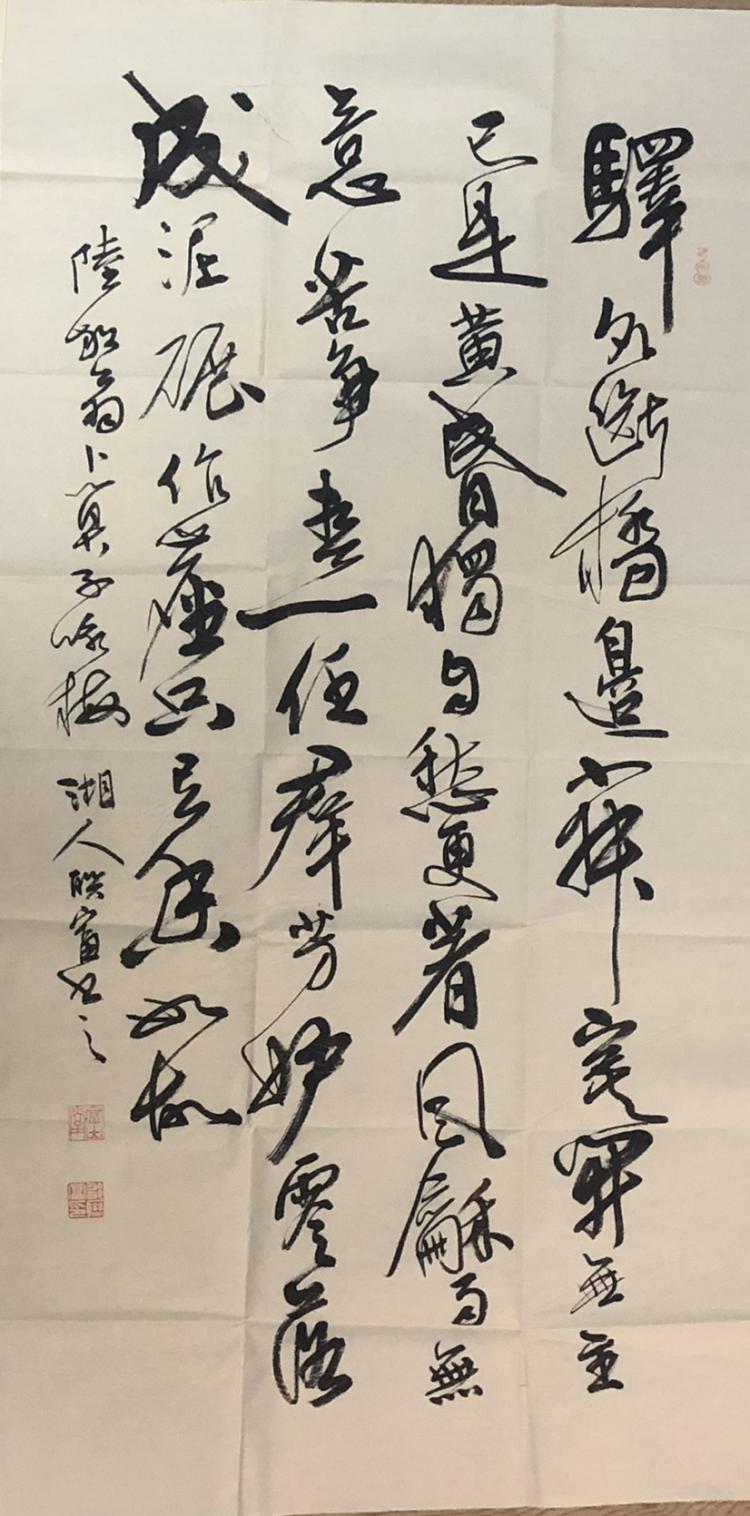 驛外斷橋邊寂寞開無主
已是黃昏獨自愁更著風龢雨無
意苦爭春一任羣芳妒零落
成泥碾作塵只有香如故
陸放翁卜算子詠梅 湘人聯書之